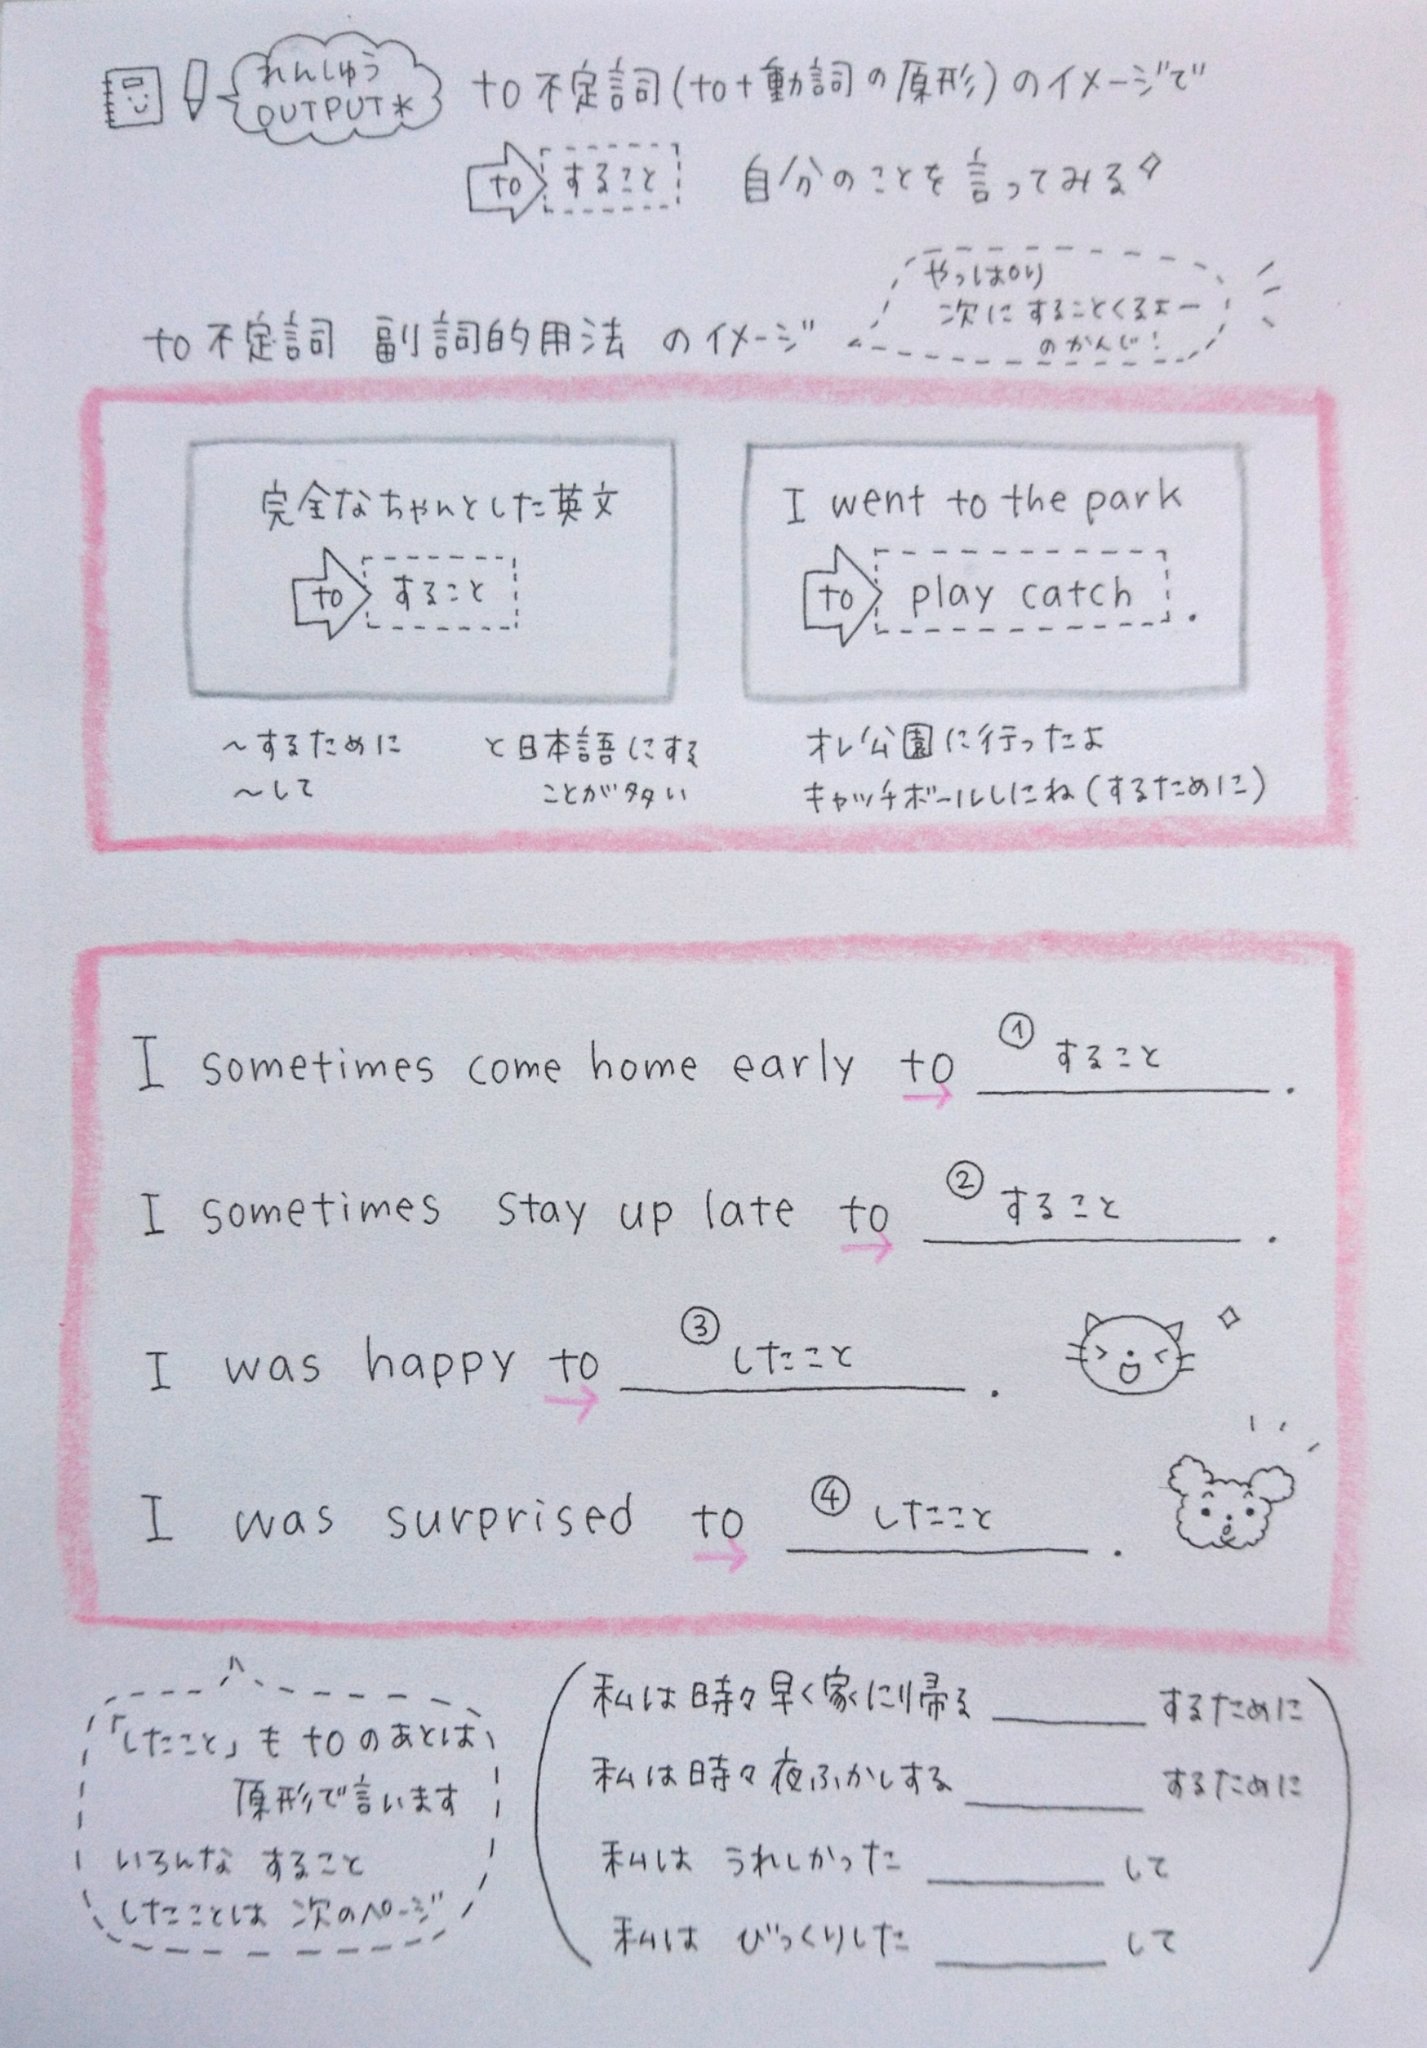 れんしゅう
OUTPUT*
to 不定詞 (to + 動詞の原形) のイメージで
to すること 自分のことを言ってみる
やっぱり
次にすることくるよー
のかんじ!
to 不定詞 副詞的用法 のイメージ
完全なちゃんとした英文
to すること
I went to the park
to play catch .
~するために と日本語にする
~して ことが多い
オレ公園に行ったよ
キャッチボールしにね(するために)
I sometimes come home early to ① すること .
I sometimes stay up late to ② すること .
I was happy to ③ したこと .
I was surprised to ④ したこと .
「したこと」も to のあとは、
原形で言います
いろんな すること
したことは 次のページ
私は時々早く家に帰る するために
私は時々夜ふかしする するために
私は うれしかった して
私は びっくりした して